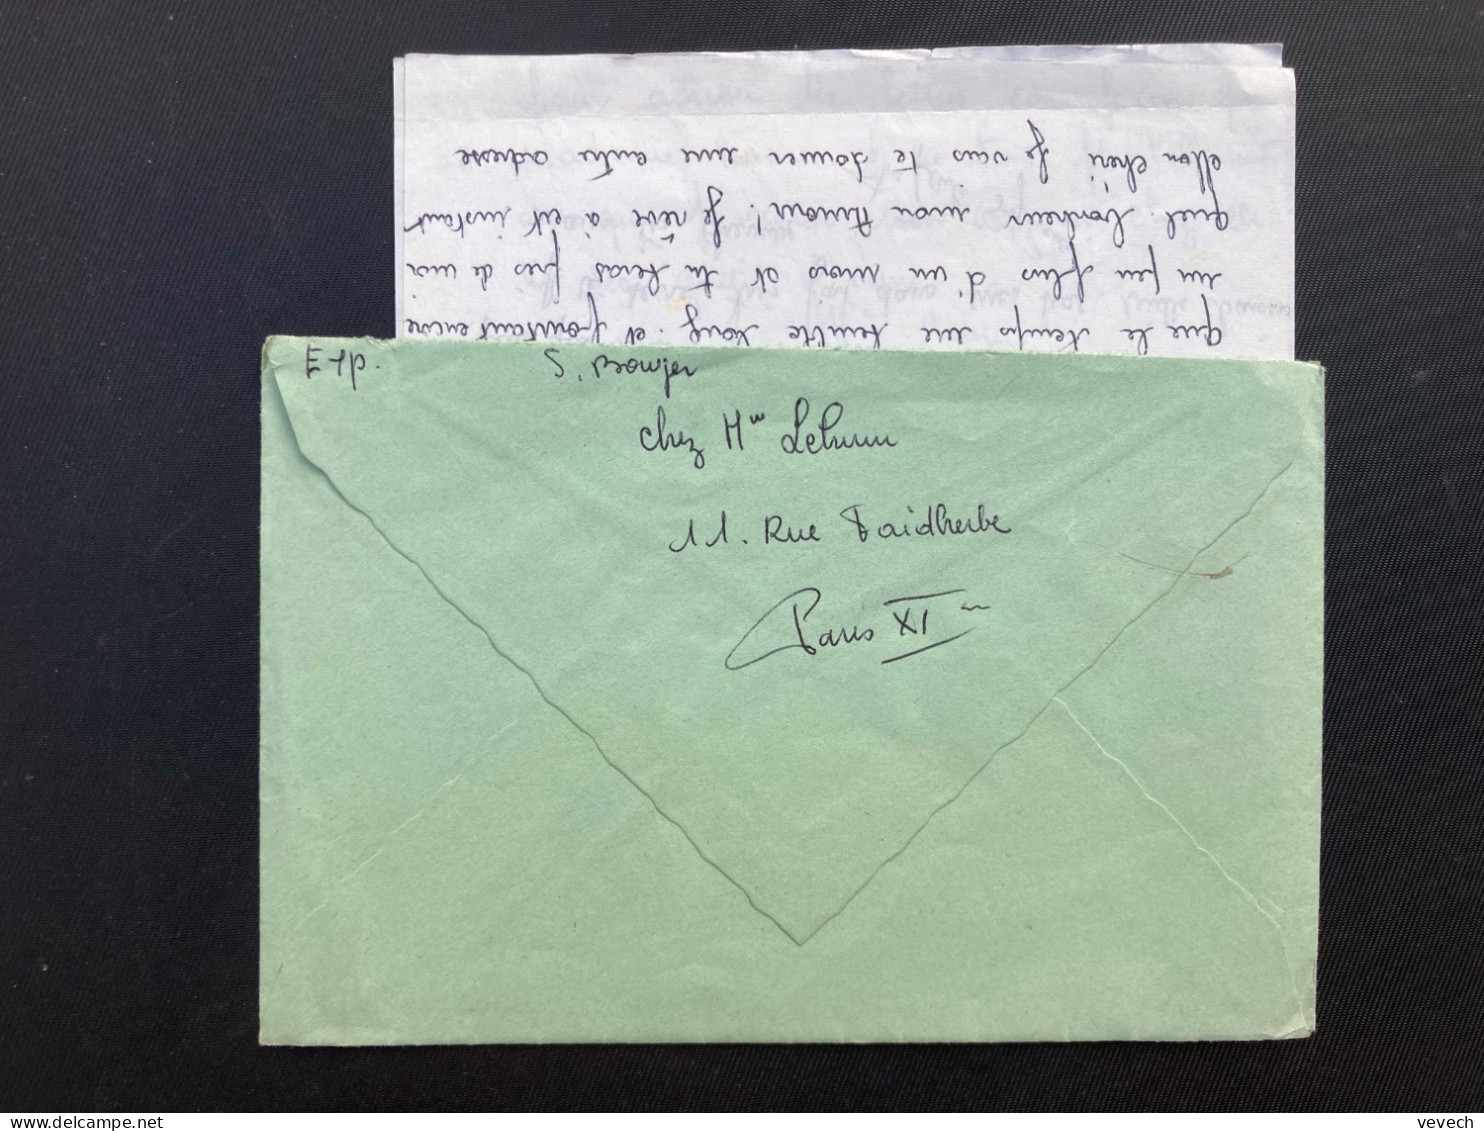 que le temps me semble long. et pourtant encore
un peu plus d'un mois et tu seras près de moi
quel bonheur mon Amour! Je rêve à cet instant
Mon chéri Je vais te donner une autre adresse
Exp. S.
chez Mme
11. Rue Faidherbe
Paris XIm
vevech